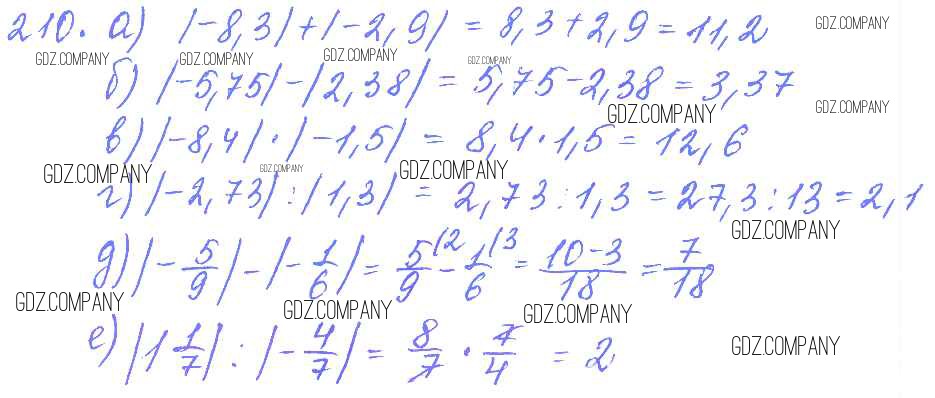 210. а) |-8,3|+|-2,9| = 8,3+2,9=11,2
GDZ.COMPANY
GDZ.COMPANY GDZ.COMPANY GDZ.COMPANY GDZ.COMPANY
б) |-5,75|-|2,38| = 5,75-2,38=3,37
GDZ.COMPANY GDZ.COMPANY
в) |-8,4|·|-1,5| = 8,4·1,5=12,6
GDZ.COMPANY GDZ.COMPANY GDZ.COMPANY
г) |-2,73|:|1,3| = 2,73:1,3=27,3:13=2,1
GDZ.COMPANY
д) |-5/9|-|-1/6| = 5/9(2 - 1/6(3 = 10-3/18 = 7/18
GDZ.COMPANY GDZ.COMPANY GDZ.COMPANY
е) |1 1/7| : |-4/7| = 8/7 · 7/4 = 2
GDZ.COMPANY